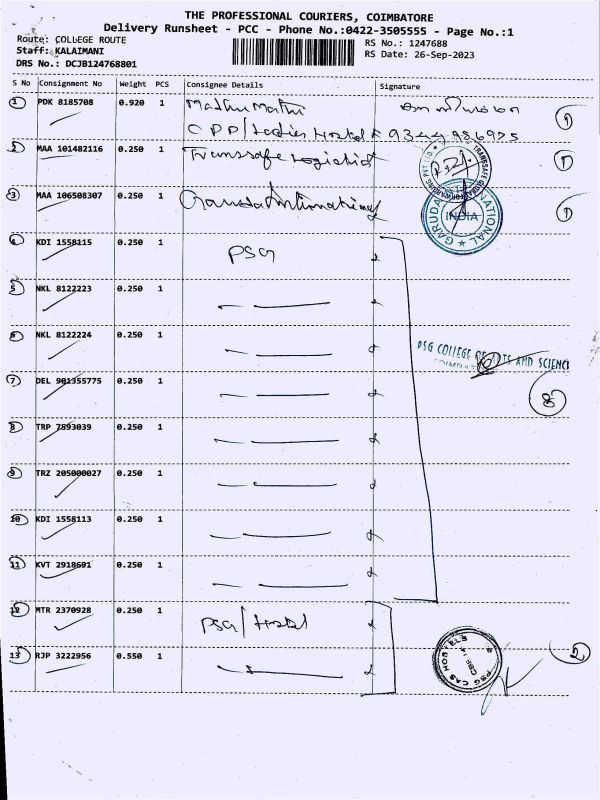 THE PROFESSIONAL COURIERS, COIMBATORE
Delivery Runsheet - PCC - Phone No.:0422-3505555 - Page No.:1
Route: COLLEGE ROUTE
Staff: KALAIMANI
DRS No.: DCJB124768801
RS No.: 1247688
RS Date: 26-Sep-2023
S No Consignment No Weight PCS Consignee Details Signature
1 PDK 8185708 0.920 1 Madhu Mathi
1
2 MAA 101482116 0.250 1 Transsafe Logistics
1
3 MAA 106508307 0.250 1 Garuda International
GARUDA INTERNATIONAL
INDIA
1
4 KDI 1558115 0.250 1 PSG
5 NKL 8122223 0.250 1
6 NKL 8122224 0.250 1
PSG COLLEGE OF ARTS AND SCIENC
7 DEL 901355775 0.250 1
8
8 TRP 7593039 0.250 1
9 TRZ 205000027 0.250 1
10 KDI 1558113 0.250 1
11 KVT 2918691 0.250 1
12 MTR 2370928 0.250 1 PSG/Hostel
13 RJP 3222956 0.550 1
PSG CAS HOSTELS
2